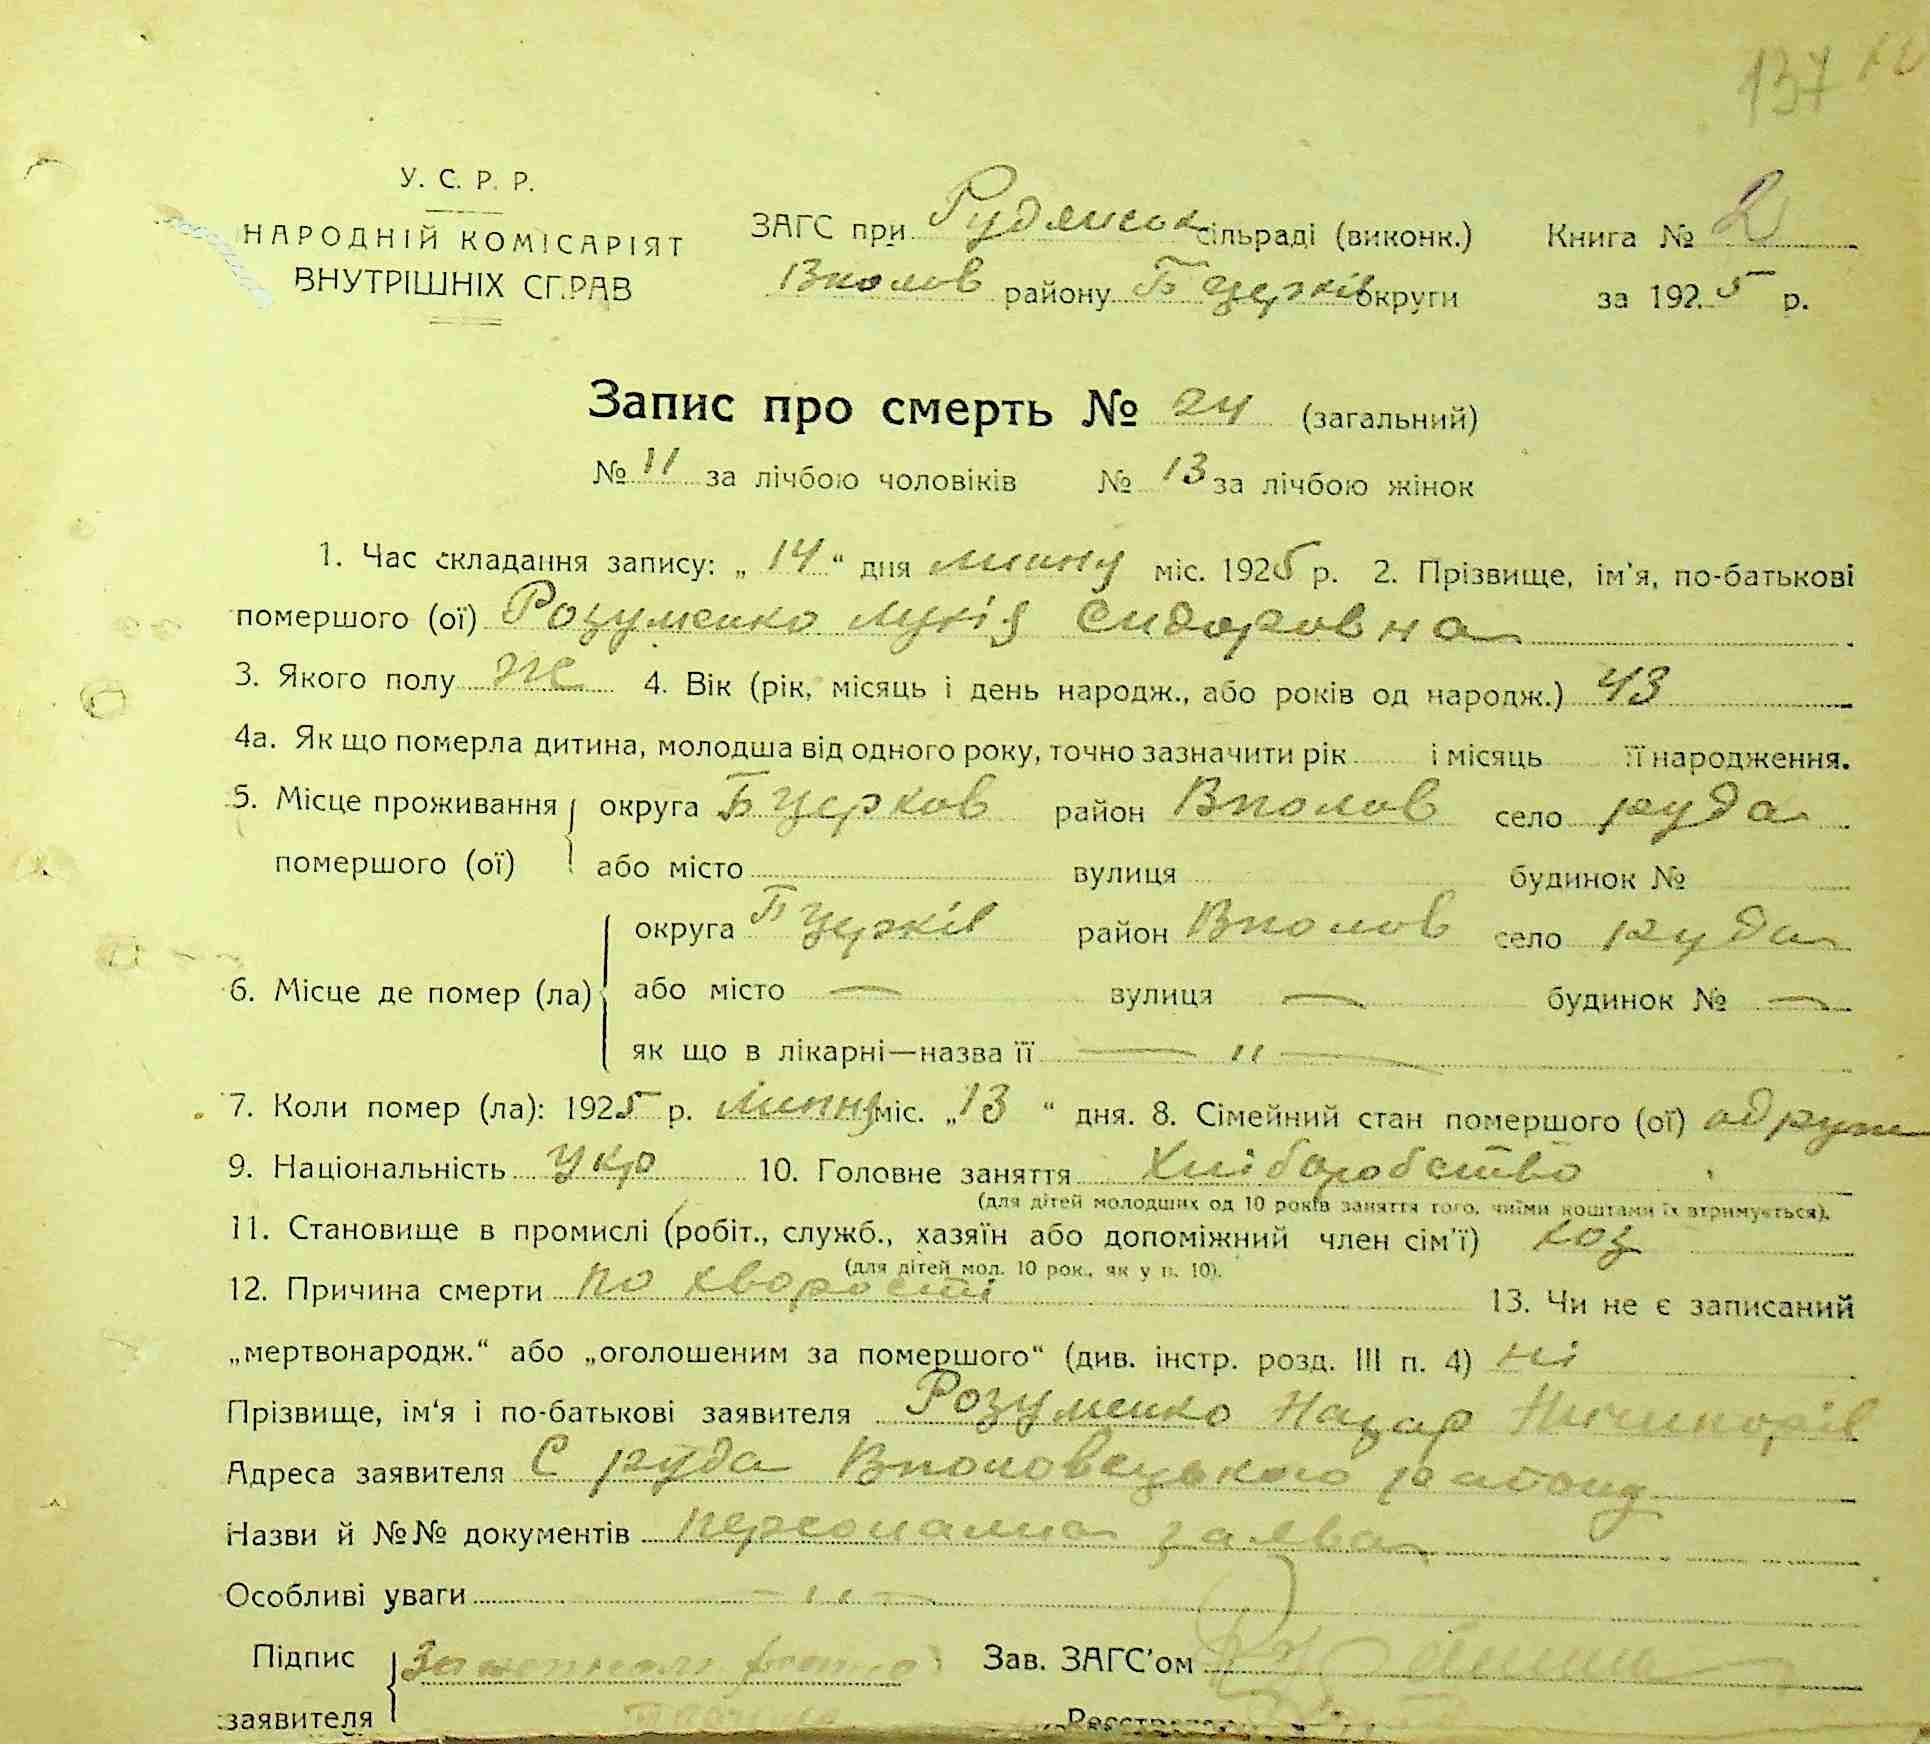 137
У. С. Р. Р.
НАРОДНІЙ КОМІСАРІЯТ
ВНУТРІШНІХ СПРАВ
ЗАГС при Рудянськ сільраді (виконк.) Книга № 2
Вполов району Б Церків округи за 1925 р.
Запис про смерть № 24 (загальний)
№ 11 за лічбою чоловіків № 13 за лічбою жінок
1. Час складання запису: „14“ дня липню міс. 1925 р. 2. Прізвище, ім'я, по-батькові
помершого (ої) Розуменко Лукія Сидоровна
3. Якого полу Ж 4. Вік (рік, місяць і день народж., або років од народж.) 43
4а. Як що померла дитина, молодша від одного року, точно зазначити рік і місяць її народження.
5. Місце проживання округа Б Церков район Вполов село руда
помершого (ої) або місто вулиця будинок №
округа Б Церків район Вполов село руда
6. Місце де помер (ла) або місто — вулиця — будинок № —
як що в лікарні—назва її — " —
7. Коли помер (ла): 1925 р. липню міс. „13“ дня. 8. Сімейний стан помершого (ої) одруж
9. Національність Укр 10. Головне заняття Хліборобство
(для дітей молодших од 10 років заняття того, чиїми коштами їх втримується).
11. Становище в промислі (робіт., служб., хазяїн або допоміжний член сім'ї) хоз
(для дітей мол. 10 рок., як у п. 10).
12. Причина смерти по хворости 13. Чи не є записаний
„мертвонародж.“ або „оголошеним за помершого“ (див. інстр. розд. III п. 4) ні
Прізвище, ім'я і по-батькові заявителя Розуменко Назар Ничипорів
Адреса заявителя С руда Вполовецького району
Назви й №№ документів персонална заява
Особливі уваги — " —
Підпис Зав. ЗАГС'ом
заявителя